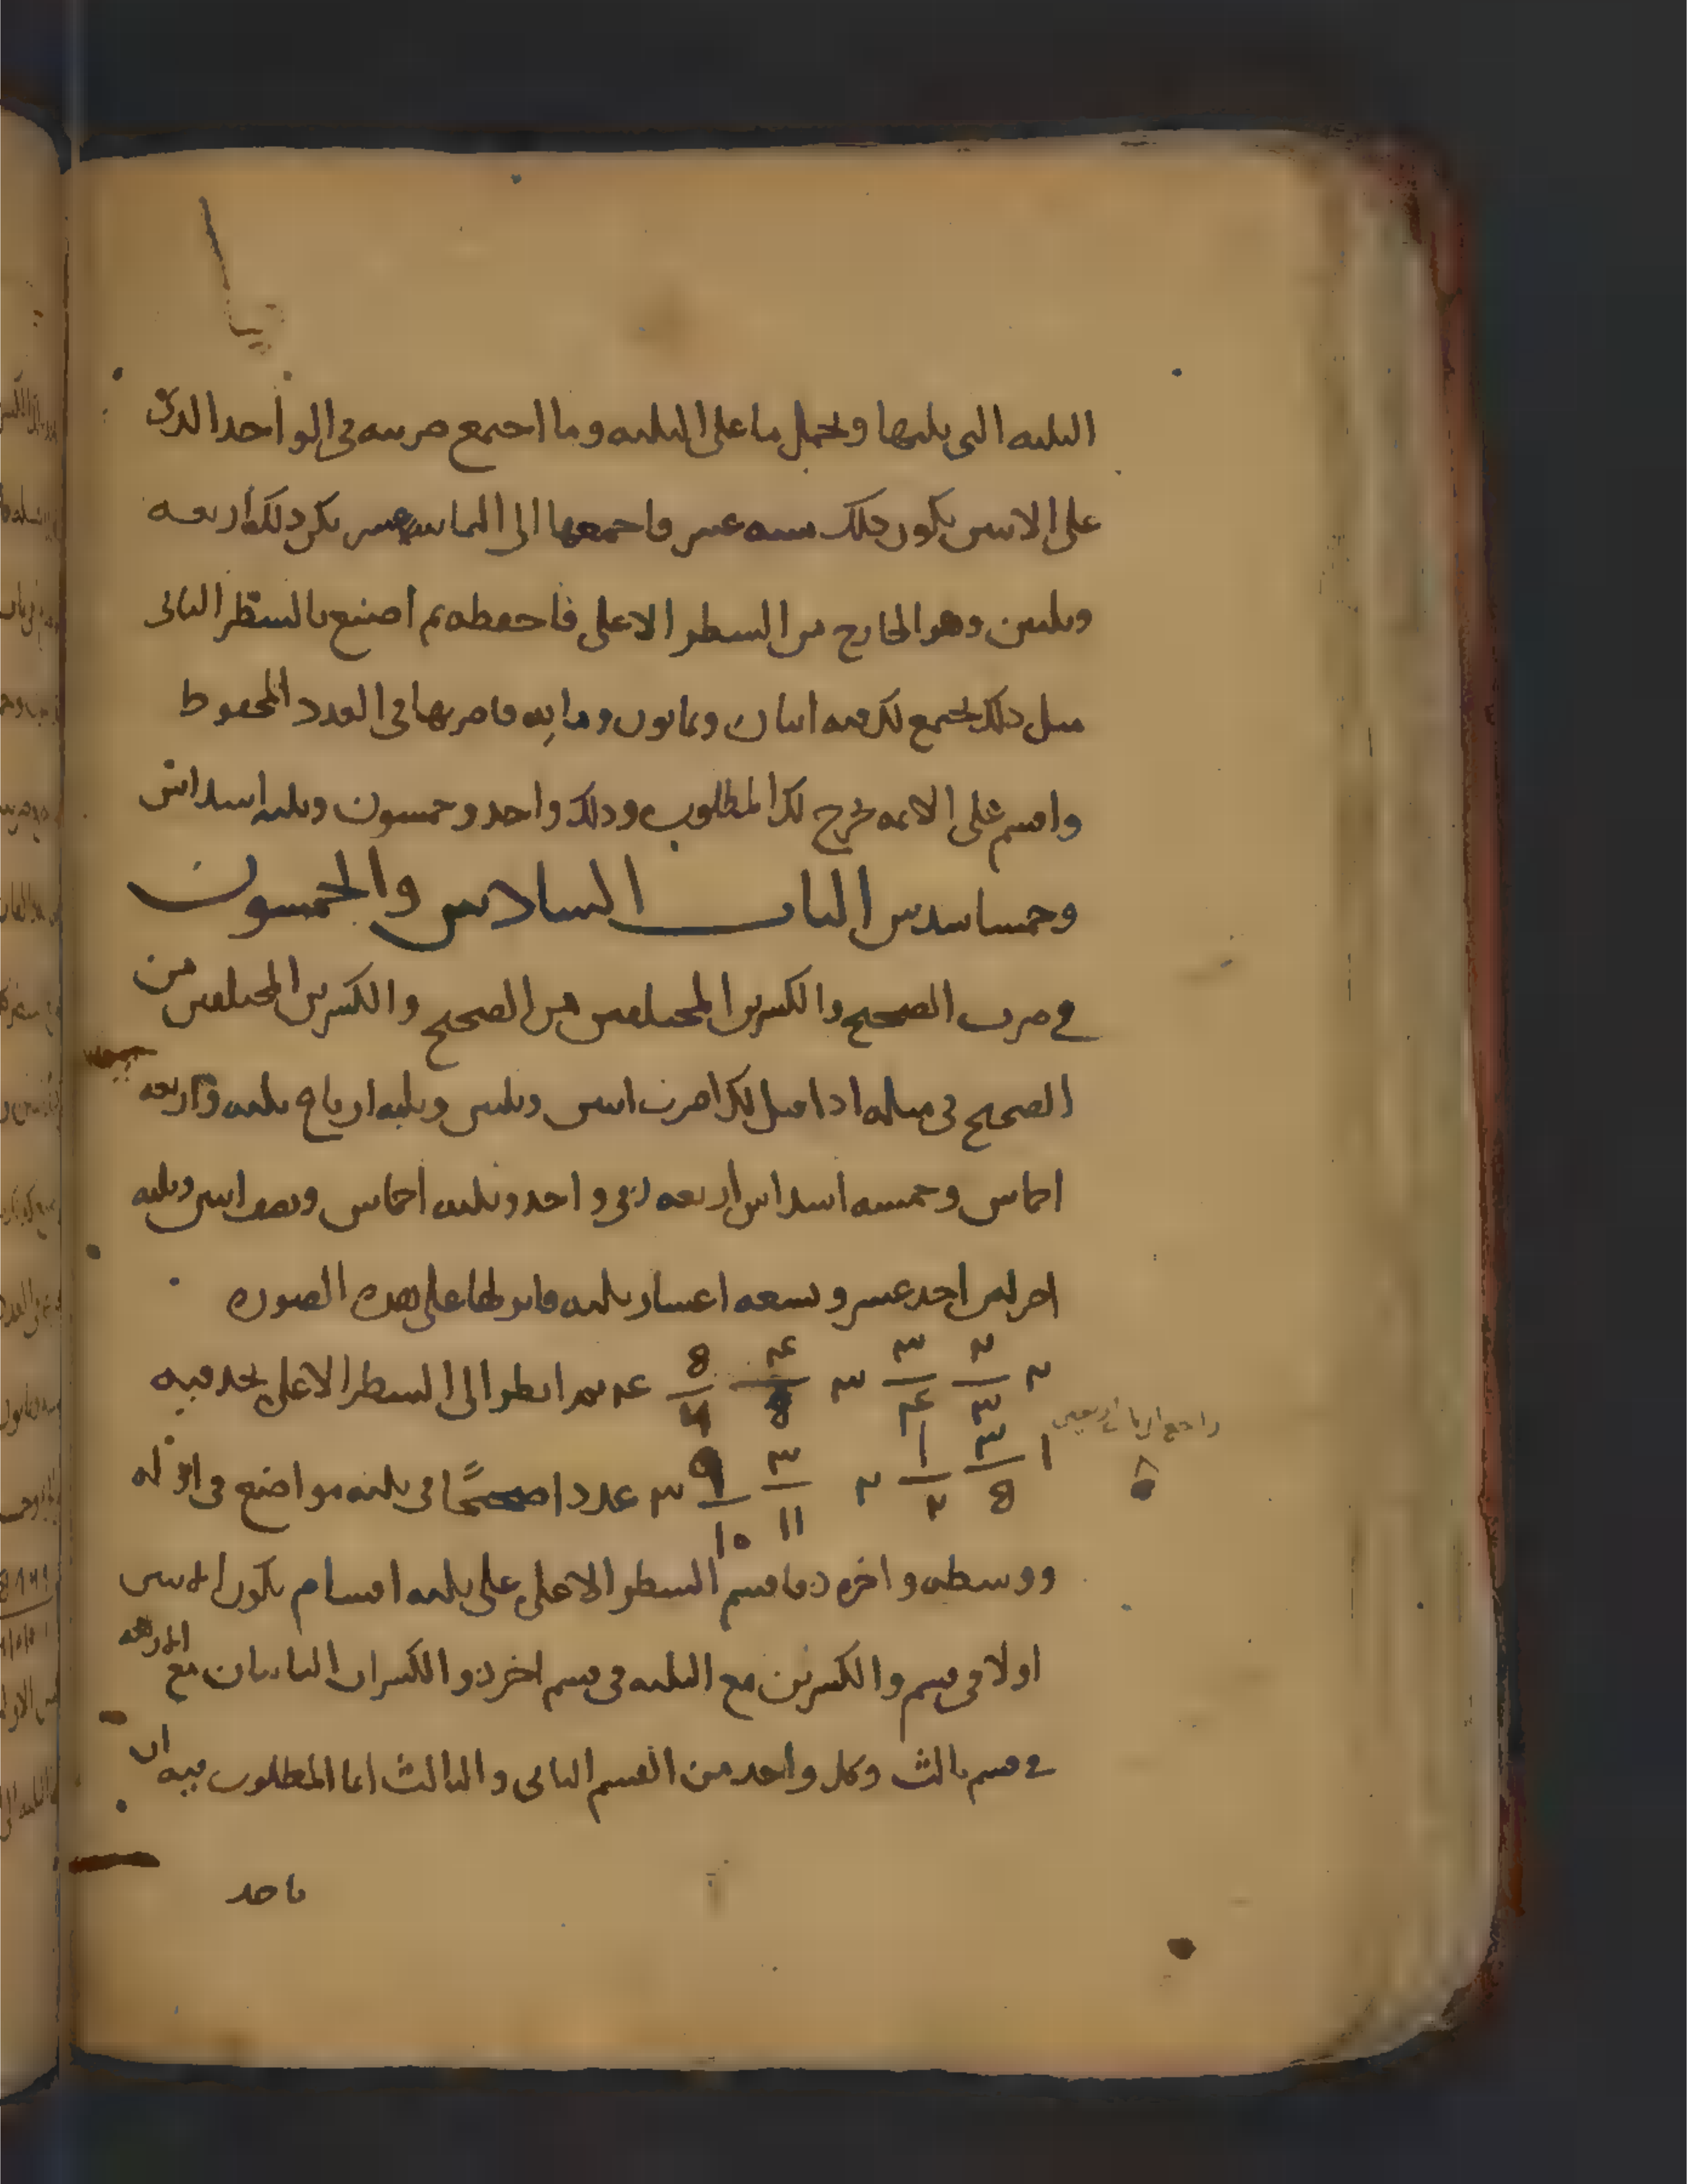 الثلثة التي تليها وتحمل ما على الثلثة وما اجتمع ضربته في الواحد الذي
على الاثنين يكون ذلك ستة عشر فاجمعها الى الثمانية عشر يكن ذلك اربعة
وثلثين وهو الخارج من السطر الاعلى فاحفظه ثم اصنع بالسطر الثاني
مثل ذلك يجتمع لك منه اثنان وثمانون ومايه فاضربها في العدد المحفوظ
واقسم على الائمة يخرج لك المطلوب وذلك واحد وخمسون وثلثة اسداس
وخمسا سدس الباب السادس والخمسون
في ضرب الصحيح والكسرين المختلفين من الصحيح والكسرين المختلفين من
الصحيح في مثله اذا قيل لك اضرب اثنين وثلثين وثلثة ارباع ثلثة واربعة
اخماس وخمسة اسداس اربعة في واحد وثلثة اخماس ونصف اثنين وثلثة
اجزا من احد عشر وتسعة اعشار ثلثة فانزلها على هذه الصورة
٢ ٢/٣ ٣/٤ ٣ ٤/٥ ٥/٦ ٤ ثم انظر الى السطر الاعلى تجد فيه
١ ٣/٥ ١/٢ ٢ ٣/١١ ٩/١٠ ٣ عددا صحيحًا في ثلثة مواضع في اوله
ووسطه واخره فاقسم السطر الاعلى على ثلثة اقسام يكون الاثنين
اولا في قسم والكسرين مع الثلثة في قسم اخر والكسران الباقيان مع الاربعة
في قسم ثالث وكل واحد من القسم الثاني والثالث انما المطلوب فيه ان
تاخذ